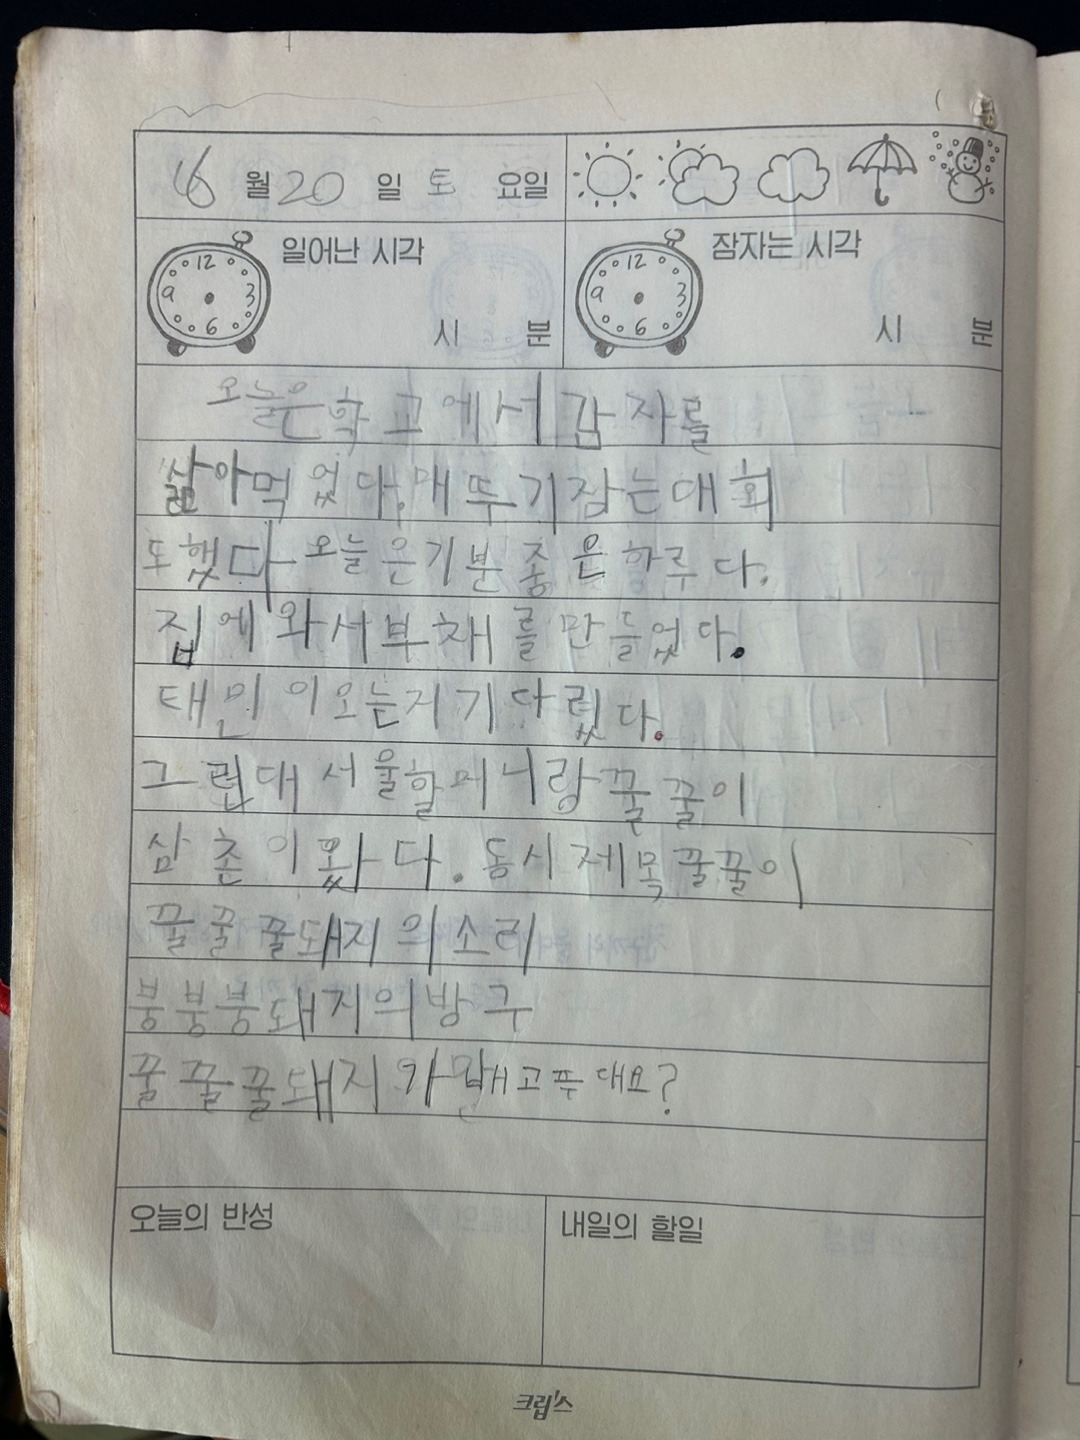 6 월 20 일 토 요일
일어난 시각
12
9 3
6
시 분
잠자는 시각
12
9 3
6
시 분
오늘은 학교에서 감자를
삶아먹었다. 매뚜기잡는대회
도했다 오늘은기분좋은하루다.
집에와서부채를만들었다.
태민이오는지기다렸다.
그런대 서울할머니랑꿀꿀이
삼촌이왔다. 동시제목꿀꿀이
꿀꿀꿀돼지의소리
붕붕붕돼지의방구
꿀꿀꿀돼지가 고푸대요?
오늘의 반성
내일의 할일
크립스